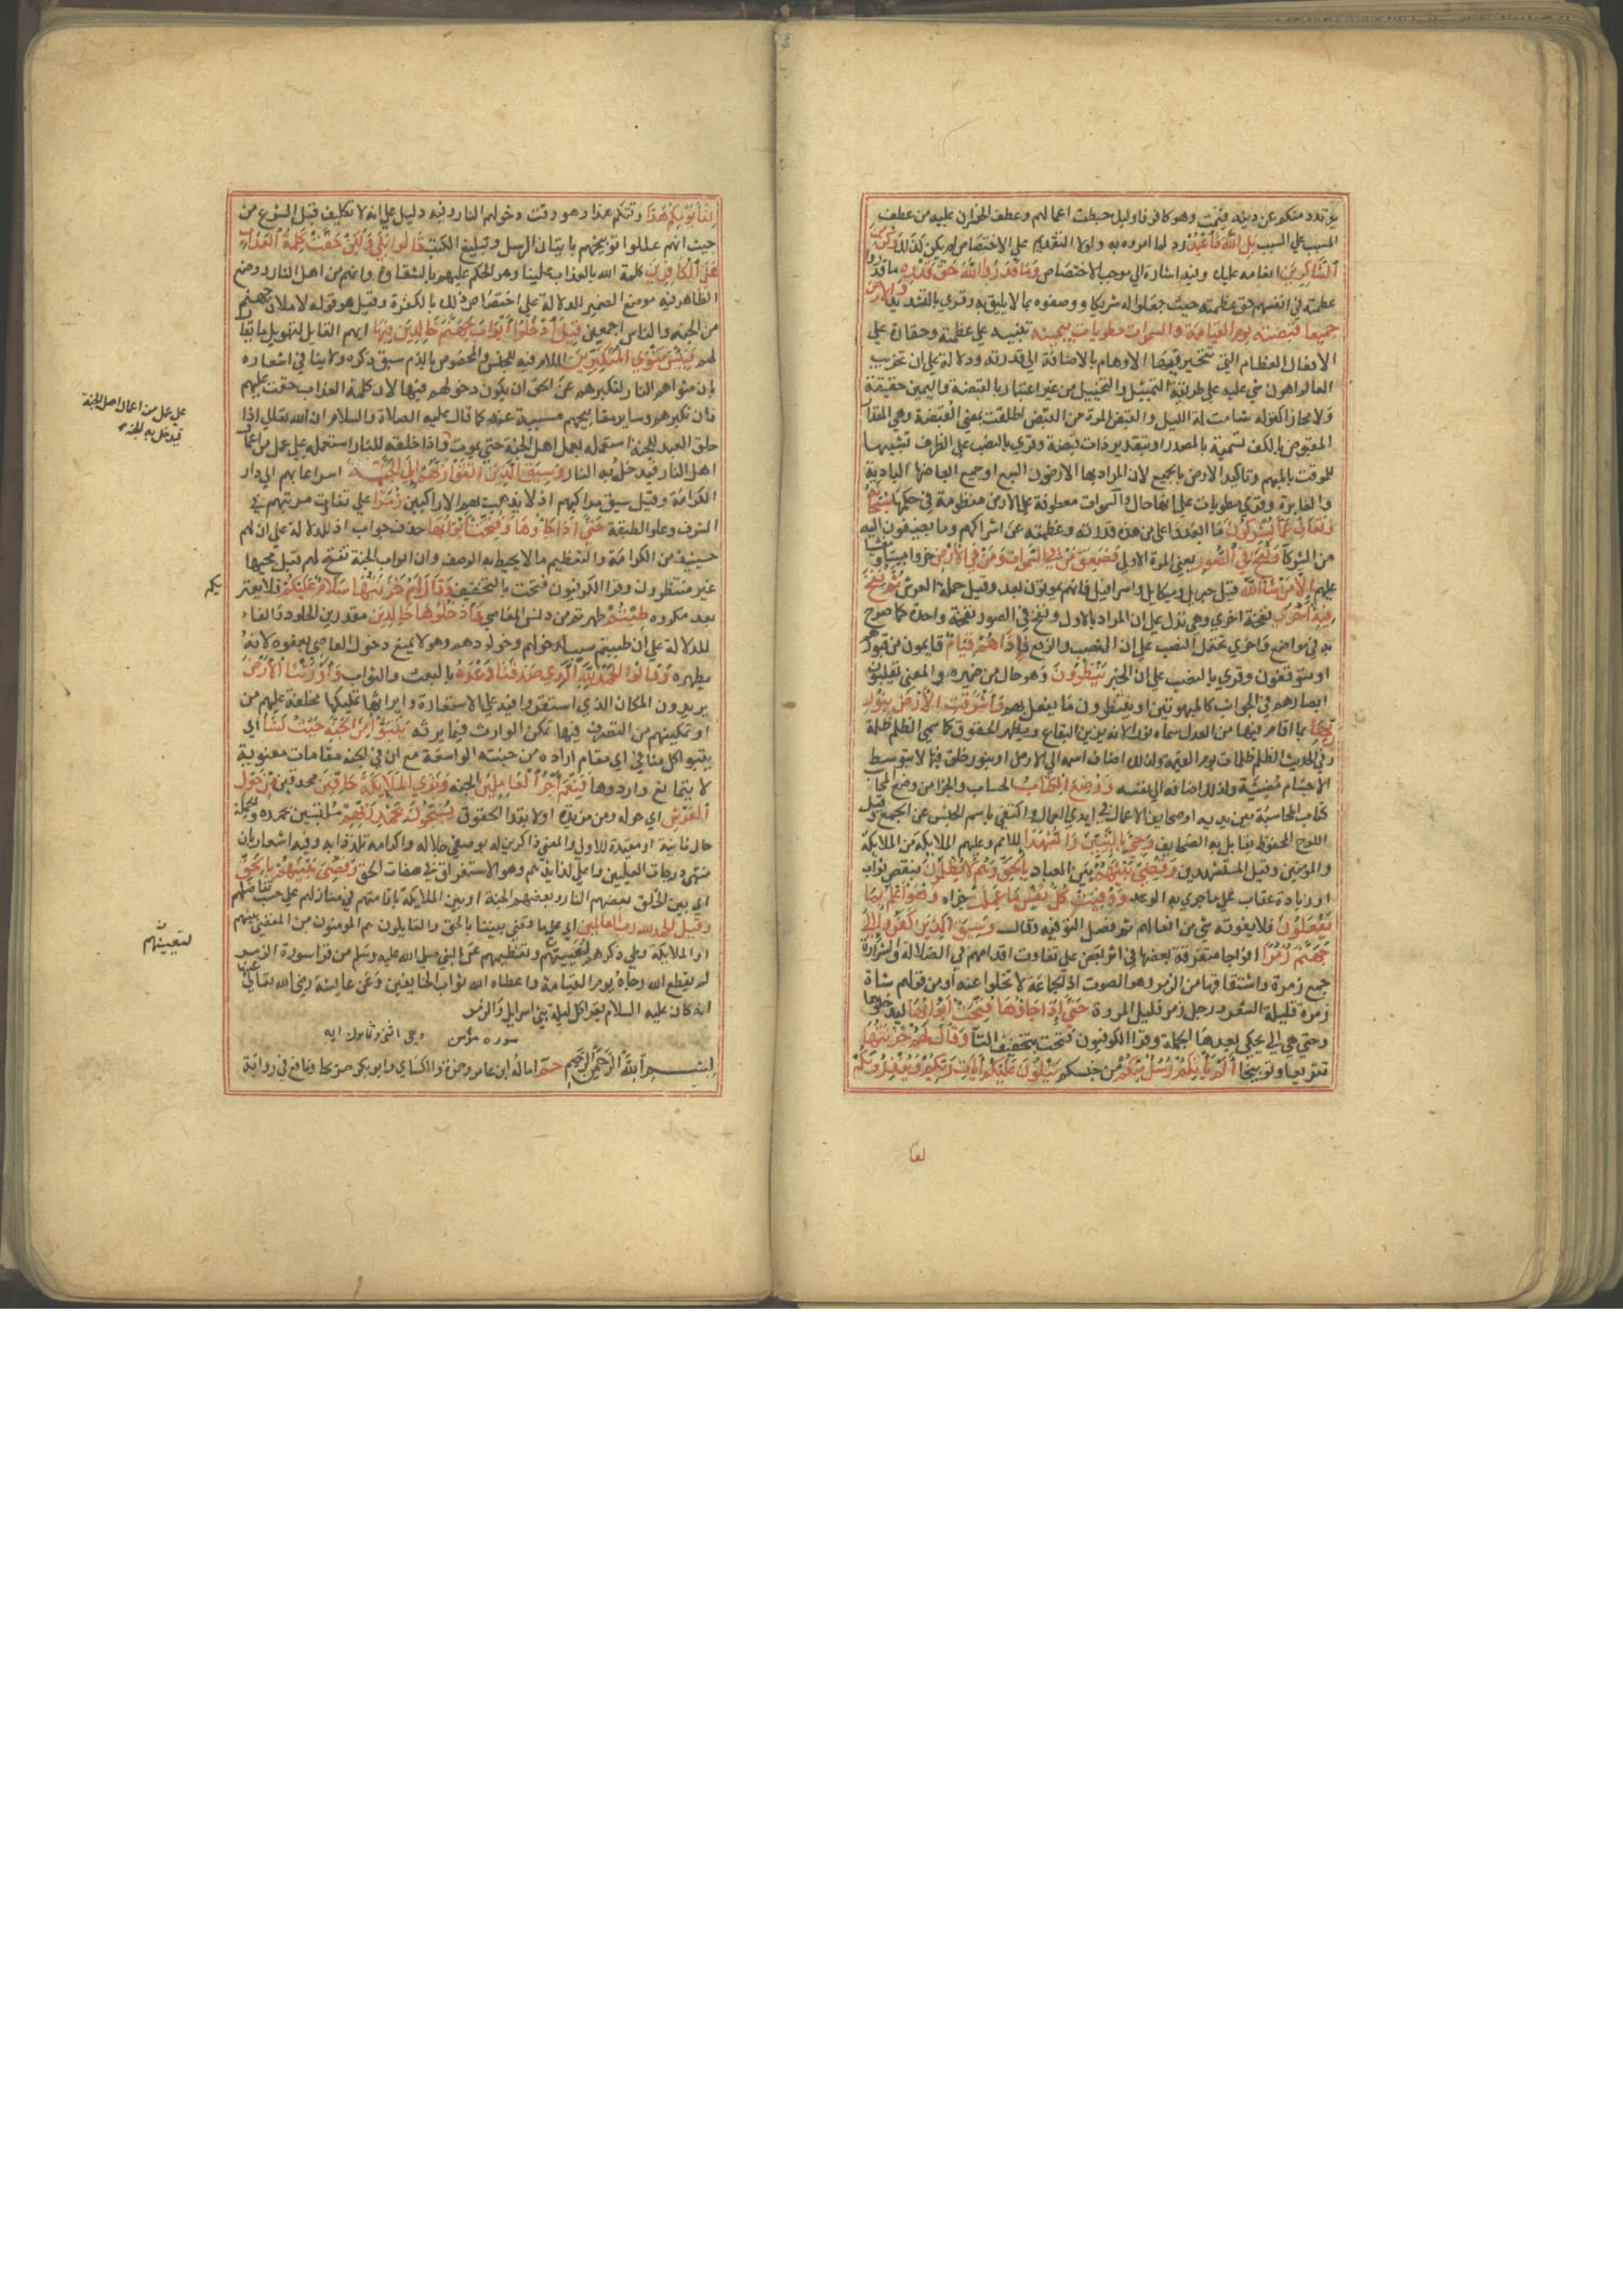 يرتدد منكم عن دينه فيمت وهو كافر فاوليك حبطت اعمالهم وعطف الخسران عليه من عطف
المسبب علي السبب بل الله فاعبد رد لما امروه به ولولا التقديم علي الاختصاص لم يكن كذلك وكن من
الشاكرين انعامه عليك وفيه اشارة الي موجب الاختصاص وما قدروا الله حق قدره ما قدروا
عظمته في انفسهم حق عظمته حيث جعلوا له شريكا ووصفوه بما لا يليق به وقري بالتشديد والارض
جميعا قبضته يوم القيامة والسموات مطويات بيمينه تنبيه علي عظمته وحقارة علي
الافعال العظام التي تتحير فيها الاوهام بالاضافة الي قدرته ودلالة علي ان تخريب
العالم اهون شي عليه علي طريقة التمثيل والتخييل من غير اعتبار بالقبضة واليمين حقيقة
ولا مجازا كقوله شابت لمة الليل والقبض المرة من القبض اطلقت بمعني القبضة وهي المقدار
المقبوض بالكف تسمية بالمصدر او بتقدير ذات قبضة وقري بالنصب علي الظرف تشبيها
للموقت بالمبهم وتاكيد الارض بالجميع لان المراد بها الارضون السبع او جميع ابعاضها البادية
والغايرة وقري مطويات علي انها حال والسموات معطوفة علي الارض منظومة في حكمها سبحانه
وتعالي عما يشركون ما ابعد واعلي من هذه قدرته وعظمته عن اشراكهم وما يضيفون اليه
من الشركا ونفخ في الصور يعني المرة الاولي فصعق من في السموات ومن في الارض خروا ميتا او مغشيا
عليهم الا من شا الله قيل جبريل وميكايل واسرافيل فانهم يموتون بعد وقيل حملة العرش ثم نفخ
فيه اخري نفخة اخري وهي تدل علي ان المراد بالاول ونفخ في الصور نفخة واحدة كما صرح
به في مواضع واخري تحتمل النصب علي ان النصب والرفع فاذا هم قيام قايمون من قبورهم
او متوقفون وقري بالنصب علي ان الخبر ينظرون وهو حال من ضميره والمعني يقلبون
ابصارهم في الجوانب كالمبهوتين او ينتظرون ما يفعل بهم واشرقت الارض بنور
ربها بما اقام فيها من العدل سماه نورا لانه يزين البقاع ويظهر الحقوق كما سمي الظلم ظلمة
وفي الحديث الظلم ظلمات يوم القيمة ولذلك اضاف اسمه الي الارض او بنور خلق فيها لا بتوسط
الاجسام مضيية ولذلك اضافه الي نفسه ووضع الكتاب الحساب والجزا من وضع المحاسب
كتاب المحاسبة بين يديه او صحايف الاعمال في ايدي العمال واكتفي باسم الجنس عن الجمع وقيل
اللوح المحفوظ يقابل به الصحايف وجي بالنبيين والشهدا للامم وعليهم الملايكة من الملايكة
والمومنين وقيل المستشهدين وقضي بينهم بين العباد بالحق وهم لا يظلمون بنقص ثواب
او زيادة عقاب علي ما جري به الوعد ووفيت كل نفس ما عملت جزاه وهو اعلم بما
يفعلون فلا يفوته شي من افعالهم ثم فصل التوفيه وقال وسيق الذين كفروا الي
جهنم زمرا افواجا متفرقة بعضها في اثر بعض علي تفاوت اقدامهم في الضلالة والشرارة
جمع زمرة واشتقاقها من الزمر وهو الصوت اذ الجماعة لا تخلوا عنه او من قولهم شاة
زمرة قليلة الشعر ورجل زمر قليل المروة حتي اذا جاؤها فتحت ابوابها ليدخلوها
وحتي هي التي يحكي بعدها الجملة وقرا الكوفيون فتحت بتخفيف التا وقال لهم خزنتها
تقريعا وتوبيخا الم ياتكم رسل منكم من جنسكم يتلون عليكم ايات ربكم وينذرونكم
لقا
لقا يومكم هذا وقتكم هذا وهو وقت دخولهم النار وفيه دليل علي انه لا تكليف قبل الشرع من
حيث انهم عللوا توبيخهم باتيان الرسل وتبليغ الكتب قالوا بلي ولكن حقت كلمة العذاب
علي الكافرين كلمة الله بالعذاب علينا وهو الحكم عليهم بالشقاوة وانهم من اهل النار ووضع
الظاهر فيه موضع الضمير للدلالة علي اختصاص ذلك بالكفرة وقيل هو قوله لاملان جهنم
من الجنة والناس اجمعين قيل ادخلوا ابواب جهنم خالدين فيها ابهم القايل لتهويل ما يقال
لهم فبيس مثوي المتكبرين اللام فيه للجنس والمخصوص بالذم سبق ذكره ولا ينافي اشعاره
بان مثواهم النار لتكبرهم عن الحق ان يكون دخولهم فيها لان كلمة العذاب حقت عليهم
فان تكبرهم وساير مقابحهم مسببة عنه كما قال عليه الصلاة والسلام ان الله تعالي اذا
خلق العبد للجنة استعمله بعمل اهل الجنة حتي يموت واذا خلقه للنار استعمله علي عمل من اعمال
اهل النار فيدخل به النار وسيق الذين اتقوا ربهم الي الجنة اسراعا بهم الي دار
الكرامة وقيل سيق مراكبهم اذ لا يذهب بهم الا راكبين زمرا علي تفاوت مرتبهم في
الشرف وعلو الطبقة حتي اذا جاؤها وفتحت ابوابها حذف جواب اذ للدلالة علي ان لهم
حينيذ من الكرامة والتعظيم ما لا يحيط به الوصف وان ابواب الجنة تفتح لهم قبل مجيها
غير منتظرون وقرا الكوفيون فتحت بالتخفيف وقال لهم خزنتها سلام عليكم فلا يعتر
يكم
بعد مكروه طبتم طهرتم من دنس المعاصي فادخلوها خالدين مقدرين الخلود والفاء
للدلالة علي ان طيبتهم سبب لدخولهم وخلودهم وهو لا يمنع دخول العاصي بعفوه لانه
يطهره وقالوا الحمد لله الذي صدقنا وعده بالبعث والثواب واورثنا الارض
يريدون المكان الذي استقروا فيه علي الاستعارة وايراثها تمليكها مخلفة عليهم من
او تمكينهم من التصرف فيها تمكن الوارث فيما يرثه نتبوا من الجنة حيث نشا اي
يتبوا كل منا في اي مقام اراده من جنته الواسعة مع ان في الجنة مقامات معنوية
لا يتمانع واردوها فنعم اجر العاملين الجنة وتري الملايكة حافين محدقين من حول
العرش اي حوله ومن مزيدة او لابتدا الحقوق يسبحون بحمد ربهم متلبسين بحمده والجملة
حال ثانية او مقيدة للاولي والمعني ذاكرين له بوصفي جلاله واكرامه تلذذا به وفيه اشعار بان
منتهي درجات العليين واعلي لذايذهم وهو الاستغراق في صفات الحق وقضي بينهم بالحق
اي بين الخلق بعضهم النار وبعضهم الجنة او بين الملايكة باقامتهم في منازلهم علي حسب تفاضلهم
وقيل الحمد لله رب العالمين اي علي ما قضي بيننا بالحق والقايلون هم المومنون من المقضي بينهم
او الملايكة وطي ذكرهم لتعيينهم وتعظيمهم عن النبي صلي الله عليه وسلم من قرا سورة الزمر
لم يقطع الله رجاه يوم القيامة واعطاه الله ثواب الخايفين وعن عايشة رضي الله تعالي عنها
انه كان عليه السلام يقرا كل ليلة بني اسرايل والزمر
سورة مؤمن وهي اثنتي وثمانون ايه
بسم الله الرحمن الرحيم حم اماله ابن عامر وحمزة والكساي وابو بكر صريحا ونافع في رواية
علي عمل من اعمال اهل الجنة
فيدخل به الجنة
لتعيينهم